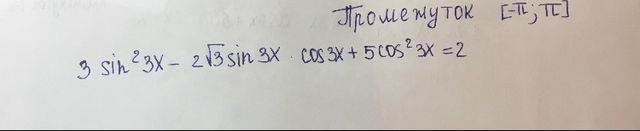 Промежуток [-π; π]
3 sin²3x - 2√3 sin 3x · cos 3x + 5 cos²3x = 2